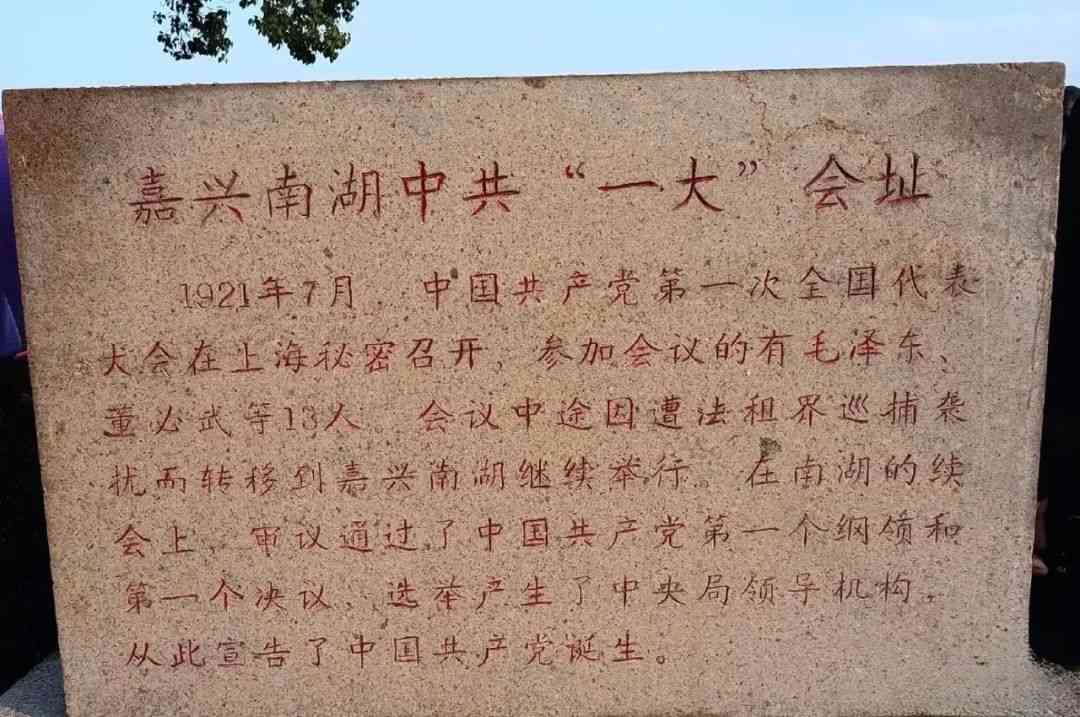 嘉兴南湖中共“一大”会址
1921年7月，中国共产党第一次全国代表
大会在上海秘密召开，参加会议的有毛泽东、
董必武等13人 会议中途因遭法租界巡捕袭
扰而转移到嘉兴南湖继续举行。在南湖的续
会上，审议通过了中国共产党第一个纲领和
第一个决议，选举产生了中央局领导机构，
从此宣告了中国共产党诞生。